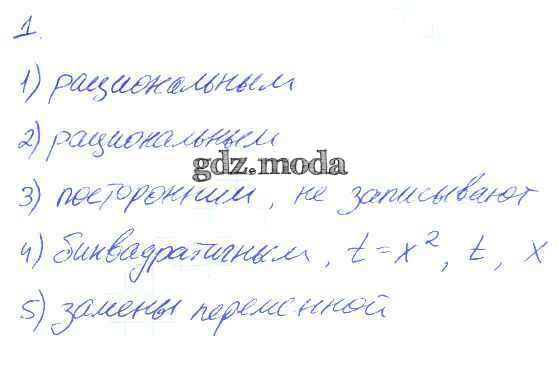 1.
1) рациональным
2) рациональным
gdz.moda
3) посторонним, не записывают
4) биквадратичным, t = x², t, x
5) замены переменной